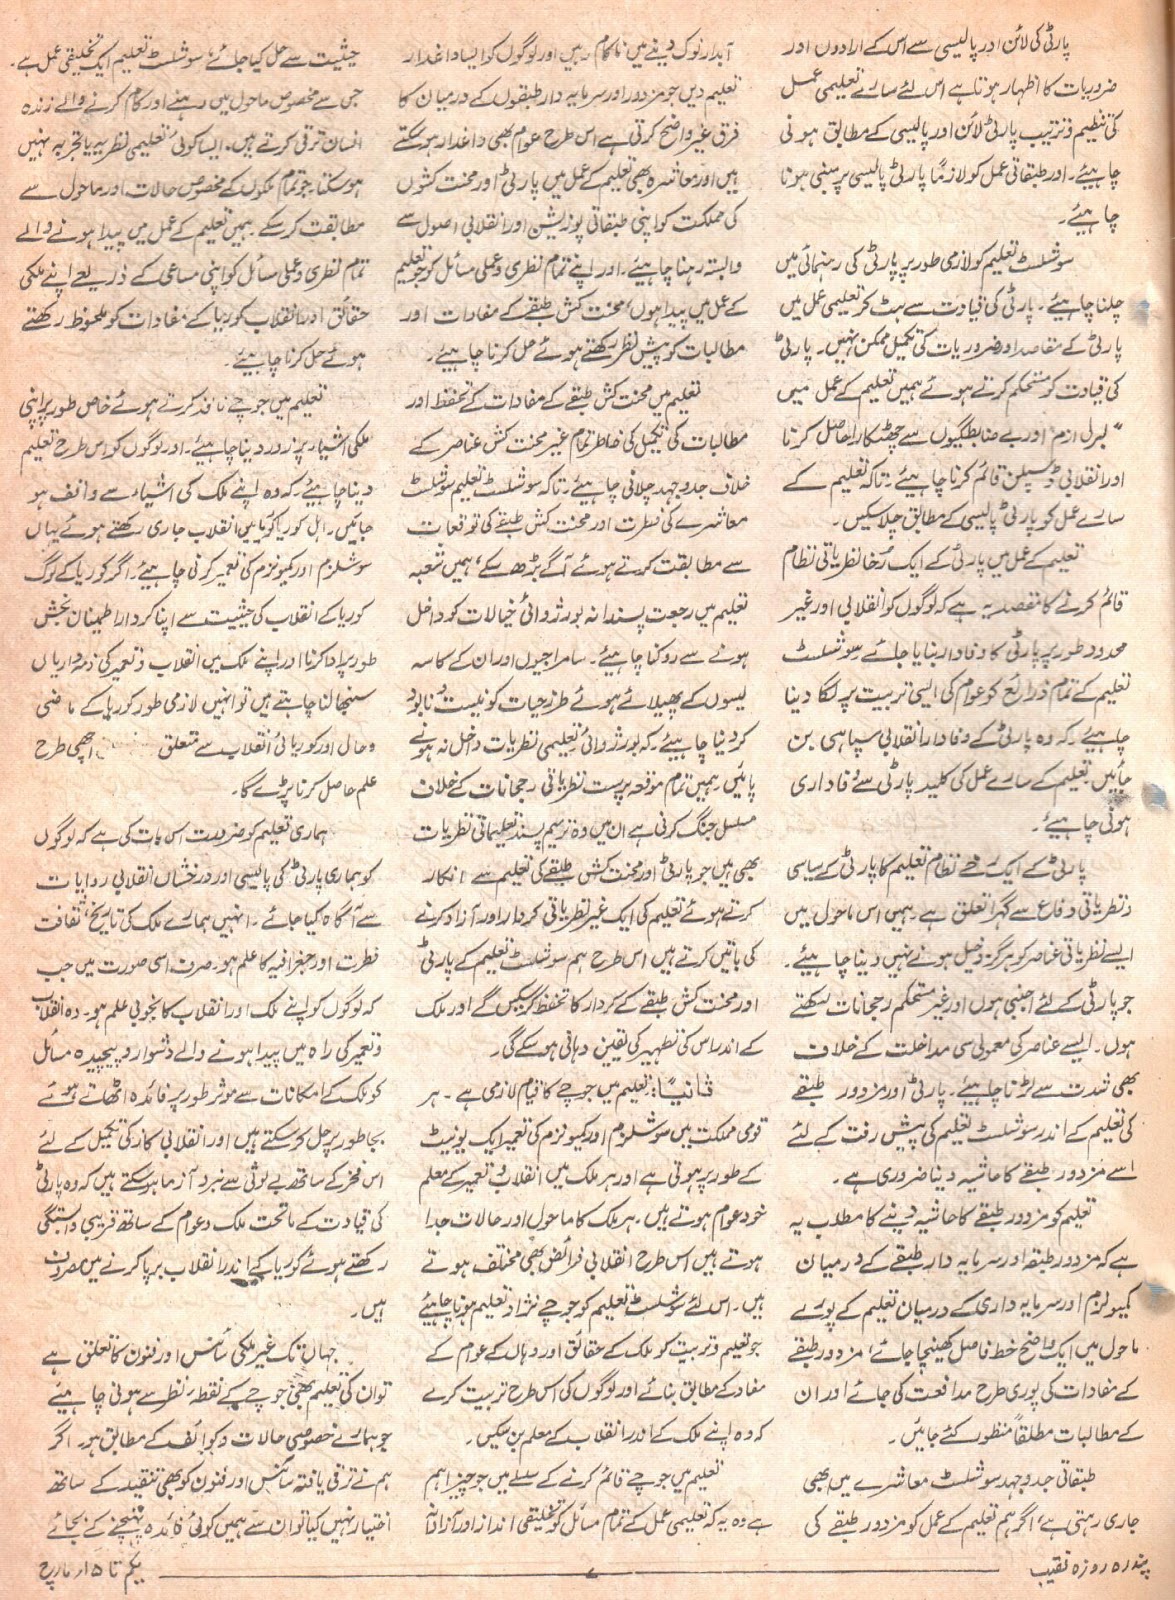 پارٹی کی لائن اور پالیسی سے اس کے ارادوں اور
ضروریات کا اظہار ہوتا ہے اس لئے سارے تعلیمی عمل
کی تنظیم و ترتیب پارٹی لائن اور پالیسی کے مطابق ہونی
چاہیئے۔ اور طبقاتی عمل کو لازماً پارٹی پالیسی پر مبنی ہونا
چاہیئے۔
سوشلسٹ تعلیم کو لازمی طور پر پارٹی کی رہنمائی میں
چلنا چاہیئے۔ پارٹی کی قیادت سے ہٹ کر تعلیمی عمل میں
پارٹی کے مقاصد اور ضروریات کی تکمیل ممکن نہیں۔ پارٹی
کی قیادت کو مستحکم کرتے ہوئے ہمیں تعلیم کے عمل میں
"لبرل ازم" اور بے ضابطگیوں سے چھٹکارا حاصل کرنا
اور انقلابی ڈسپلن قائم کرنا چاہیئے۔ تاکہ تعلیم کے
سارے عمل کو پارٹی پالیسی کے مطابق چلا سکیں۔
تعلیم کے عمل میں پارٹی کے ایک رخا نظریاتی نظام
قائم کرنے کا مقصد یہ ہے کہ لوگوں کو انقلابی اور غیر
محدود طور پر پارٹی کا وفادار بنایا جائے۔ سوشلسٹ
تعلیم کے تمام ذرائع کو عوام کی ایسی تربیت پر لگا دینا
چاہیئے۔ کہ وہ پارٹی کے وفادار انقلابی سپاہی بن
جائیں۔ تعلیم کے سارے عمل کی کلید پارٹی سے وفاداری
ہونی چاہیئے۔
پارٹی کے ایک رخے نظام تعلیم کا پارٹی کے سیاسی
و نظریاتی دفاع سے گہرا تعلق ہے۔ ہمیں اس ماحول میں
ایسے نظریاتی عناصر کو ہرگز دخیل ہونے نہیں دینا چاہیئے۔
جو پارٹی کے لئے اجنبی ہوں اور غیر مستحکم رجحانات رکھتے
ہوں۔ ایسے عناصر کی معمولی سی مداخلت کے خلاف
بھی شدت سے لڑنا چاہیئے۔ پارٹی اور مزدور طبقے
کی تعلیم کے اندر سوشلسٹ تعلیم کی پیش رفت کے لئے
اسے مزدور طبقے کا حاشیہ دینا ضروری ہے۔
تعلیم کو مزدور طبقے کا حاشیہ دینے کا مطلب یہ
ہے کہ مزدور طبقہ اور سرمایہ دار طبقے کے درمیان
کمیونزم اور سرمایہ داری کے درمیان تعلیم کے پورے
ماحول میں ایک واضح خط فاصل کھینچا جائے، مزدور طبقے
کے مفادات کی پوری طرح مدافعت کی جائے اور ان
کے مطالبات مطلقاً منظور کئے جائیں۔
طبقاتی جدوجہد سوشلسٹ معاشرے میں ابھی
جاری رہتی ہے، اگر ہم تعلیم کے عمل کو مزدور طبقے کی
آبدار نوک دینے میں ناکام رہیں اور لوگوں کو ایسا داغدار
تعلیم دیں جو مزدور اور سرمایہ دار طبقوں کے درمیان کا
فرق غیر واضح کرتی ہے اس طرح عوام بھی داغدار ہو سکتے
ہیں اور معاشرہ بھی تعلیم کے عمل میں پارٹی اور محنت کشوں
کی مملکت کو اپنی طبقاتی پوزیشن اور انقلابی اصول سے
وابستہ رہنا چاہیئے۔ اور اپنے تمام نظری و عملی مسائل کو جو تعلیم
کے عمل میں پیدا ہوں، محنت کش طبقے کے مفادات اور
مطالبات کو پیش نظر رکھتے ہوئے حل کرنا چاہیئے۔
تعلیم میں محنت کش طبقے کے مفادات کے تحفظ اور
مطالبات کی تکمیل کی خاطر تمام غیر محنت کش عناصر کے
خلاف جدوجہد چلانی چاہیئے۔ تاکہ سوشلسٹ تعلیم سوشلسٹ
معاشرے کی فطرت اور محنت کش طبقے کی توقعات
سے مطابقت کرتے ہوئے آگے بڑھ سکے، ہمیں شعبہ
تعلیم میں رجعت پسندانہ بورژوائی خیالات کو داخل
ہونے سے روکنا چاہیئے۔ سامراجیوں اور ان کے کاسہ
لیسوں کے پھیلائے ہوئے طرز حیات کو نیست و نابود
کر دینا چاہیئے۔ کہ بورژوائی تعلیمی نظریات داخل نہ ہونے
پائیں۔ ہمیں تمام موقعہ پرست نظریاتی رجحانات کے خلاف
مسلسل جنگ کرنی ہے ان میں وہ ترمیم پسند تعلیماتی نظریات
بھی ہیں جو پارٹی اور محنت کش طبقے کی تعلیم سے انکار
کرتے ہوئے تعلیم کی ایک غیر نظریاتی کردار اور آزاد کرنے
کی باتیں کرتے ہیں اس طرح ہم سوشلسٹ تعلیم کے پارٹی
اور محنت کش طبقے کے کردار کا تحفظ کر سکیں گے اور ملک
کے اندر اس کی تطہیر کی یقین دہانی ہو سکے گی۔
ثانیاً: تعلیم میں جوچے کا قیام لازمی ہے۔ ہر
قومی مملکت میں سوشلزم اور کمیونزم کی تعمیر ایک یونیٹ
کے طور پر ہوتی ہے اور ہر ملک میں انقلاب و تعمیر کے معلم
خود عوام ہوتے ہیں۔ ہر ملک کا ماحول اور حالات جدا
ہوتے ہیں اس طرح انقلابی فرائض بھی مختلف ہوتے
ہیں۔ اس لئے سوشلسٹ تعلیم کو جوچے نژاد تعلیم ہونا چاہیئے
جو تعلیم و تربیت کو ملک کے حقائق اور وہاں کے عوام کے
مفاد کے مطابق بنائے اور لوگوں کی اس طرح تربیت کرے
کہ وہ اپنے ملک کے اندر انقلاب کے معلم بن سکیں۔
تعلیم میں جوچے قائم کرنے کے سلسلے میں جو چیز اہم
ہے وہ یہ کہ تعلیمی عمل کے تمام مسائل کو تخلیقی انداز اور آزادانہ
حیثیت سے حل کیا جائے، سوشلسٹ تعلیم ایک تخلیقی عمل ہے۔
جس سے مخصوص ماحول میں رہنے اور کام کرنے والے زندہ
انسان ترقی کرتے ہیں۔ ایسا کوئی تعلیمی نظریہ یا تجربہ نہیں
ہو سکتا جو تمام ملکوں کے مخصوص حالات اور ماحول سے
مطابقت کر سکے۔ ہمیں تعلیم کے عمل میں پیدا ہونے والے
تمام نظری و عملی مسائل کو اپنی مساعی کے ذریعے اپنے ملکی
حقائق اور انقلاب کوریا کے مفادات کو ملحوظ رکھتے
ہوئے حل کرنا چاہیئے۔
تعلیم میں جوچے نافذ کرتے ہوئے خاص طور پر اپنی
ملکی اشیاء پر زور دینا چاہیئے۔ اور لوگوں کو اس طرح تعلیم
دینا چاہیئے کہ وہ اپنے ملک کی اشیاء سے واقف ہو
جائیں۔ اہل کوریا کوریا میں انقلاب جاری رکھتے ہوئے یہاں
سوشلزم اور کمیونزم کی تعمیر کرنی چاہیئے۔ اگر کوریا کے لوگ
کوریا کے انقلاب کی حیثیت سے اپنا کردار اطمینان بخش
طور پر ادا کرنا اور اپنے ملک میں انقلاب و تعمیر کی ذمہ داریاں
سنبھالنا چاہتے ہیں تو انہیں لازمی طور کوریا کے ماضی
و حال اور کوریائی انقلاب سے متعلق اچھی طرح
علم حاصل کرنا پڑے گا۔
ہماری تعلیم کو ضرورت اس بات کی ہے کہ لوگوں
کو ہماری پارٹی کی پالیسی اور درخشاں انقلابی روایات
سے آگاہ کیا جائے۔ انہیں ہمارے ملک کی تاریخ، ثقافت
فطرت اور جغرافیہ کا علم ہو۔ صرف اسی صورت میں جب
کہ لوگوں کو اپنے ملک اور انقلاب کا بخوبی علم ہو۔ وہ انقلاب
و تعمیر کی راہ میں پیدا ہونے والے دشوار و پیچیدہ مسائل
کو ملک کے امکانات سے موثر طور پر فائدہ اٹھاتے ہوئے
بجا طور پر حل کر سکتے ہیں اور انقلابی کاز کی تکمیل کے لئے
اس فخر کے ساتھ بے لوثی سے نبرد آزما ہو سکتے ہیں کہ وہ پارٹی
کی قیادت کے ماتحت ملک و عوام کے ساتھ قریبی وابستگی
رکھتے ہوئے کوریا کے اندر انقلاب برپا کرنے میں مصروف
ہیں۔
جہاں تک غیر ملکی سائنس اور فنون کا تعلق ہے
تو ان کی تعلیم بھی جوچے کے نقطہ نظر سے ہونی چاہیئے
جو ہمارے خصوصی حالات و کوائف کے مطابق ہو۔ اگر
ہم نے ترقی یافتہ سائنس اور فنون کو بھی تنقید کے ساتھ
اختیار نہیں کیا تو ان سے ہمیں کوئی فائدہ پہنچنے کے بجائے
پندرہ روزہ نقیب
۷
یکم تا ۱۵ار مارچ